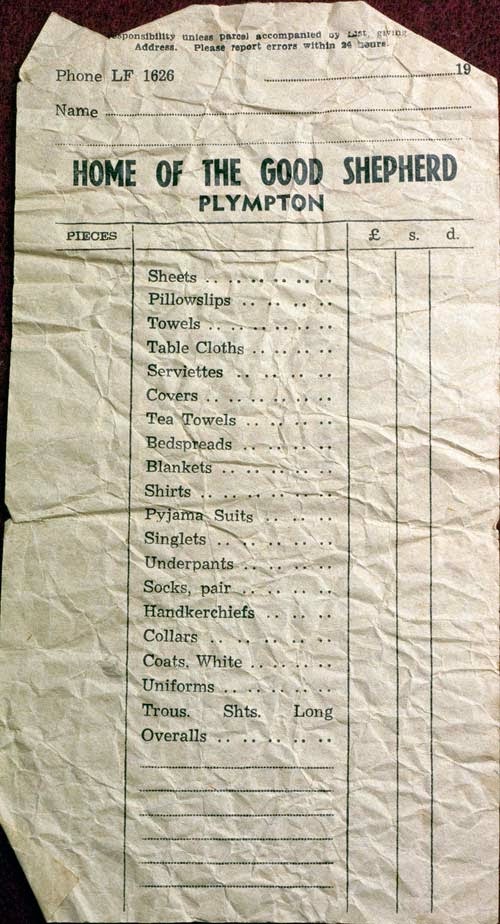 responsibility unless parcel accompanied by List, giving
Address. Please report errors within 24 hours.
Phone LF 1626 19
Name
HOME OF THE GOOD SHEPHERD
PLYMPTON
PIECES £ s. d.
Sheets
Pillowslips
Towels
Table Cloths
Serviettes
Covers
Tea Towels
Bedspreads
Blankets
Shirts
Pyjama Suits
Singlets
Underpants
Socks, pair
Handkerchiefs
Collars
Coats, White
Uniforms
Trous. Shts. Long
Overalls